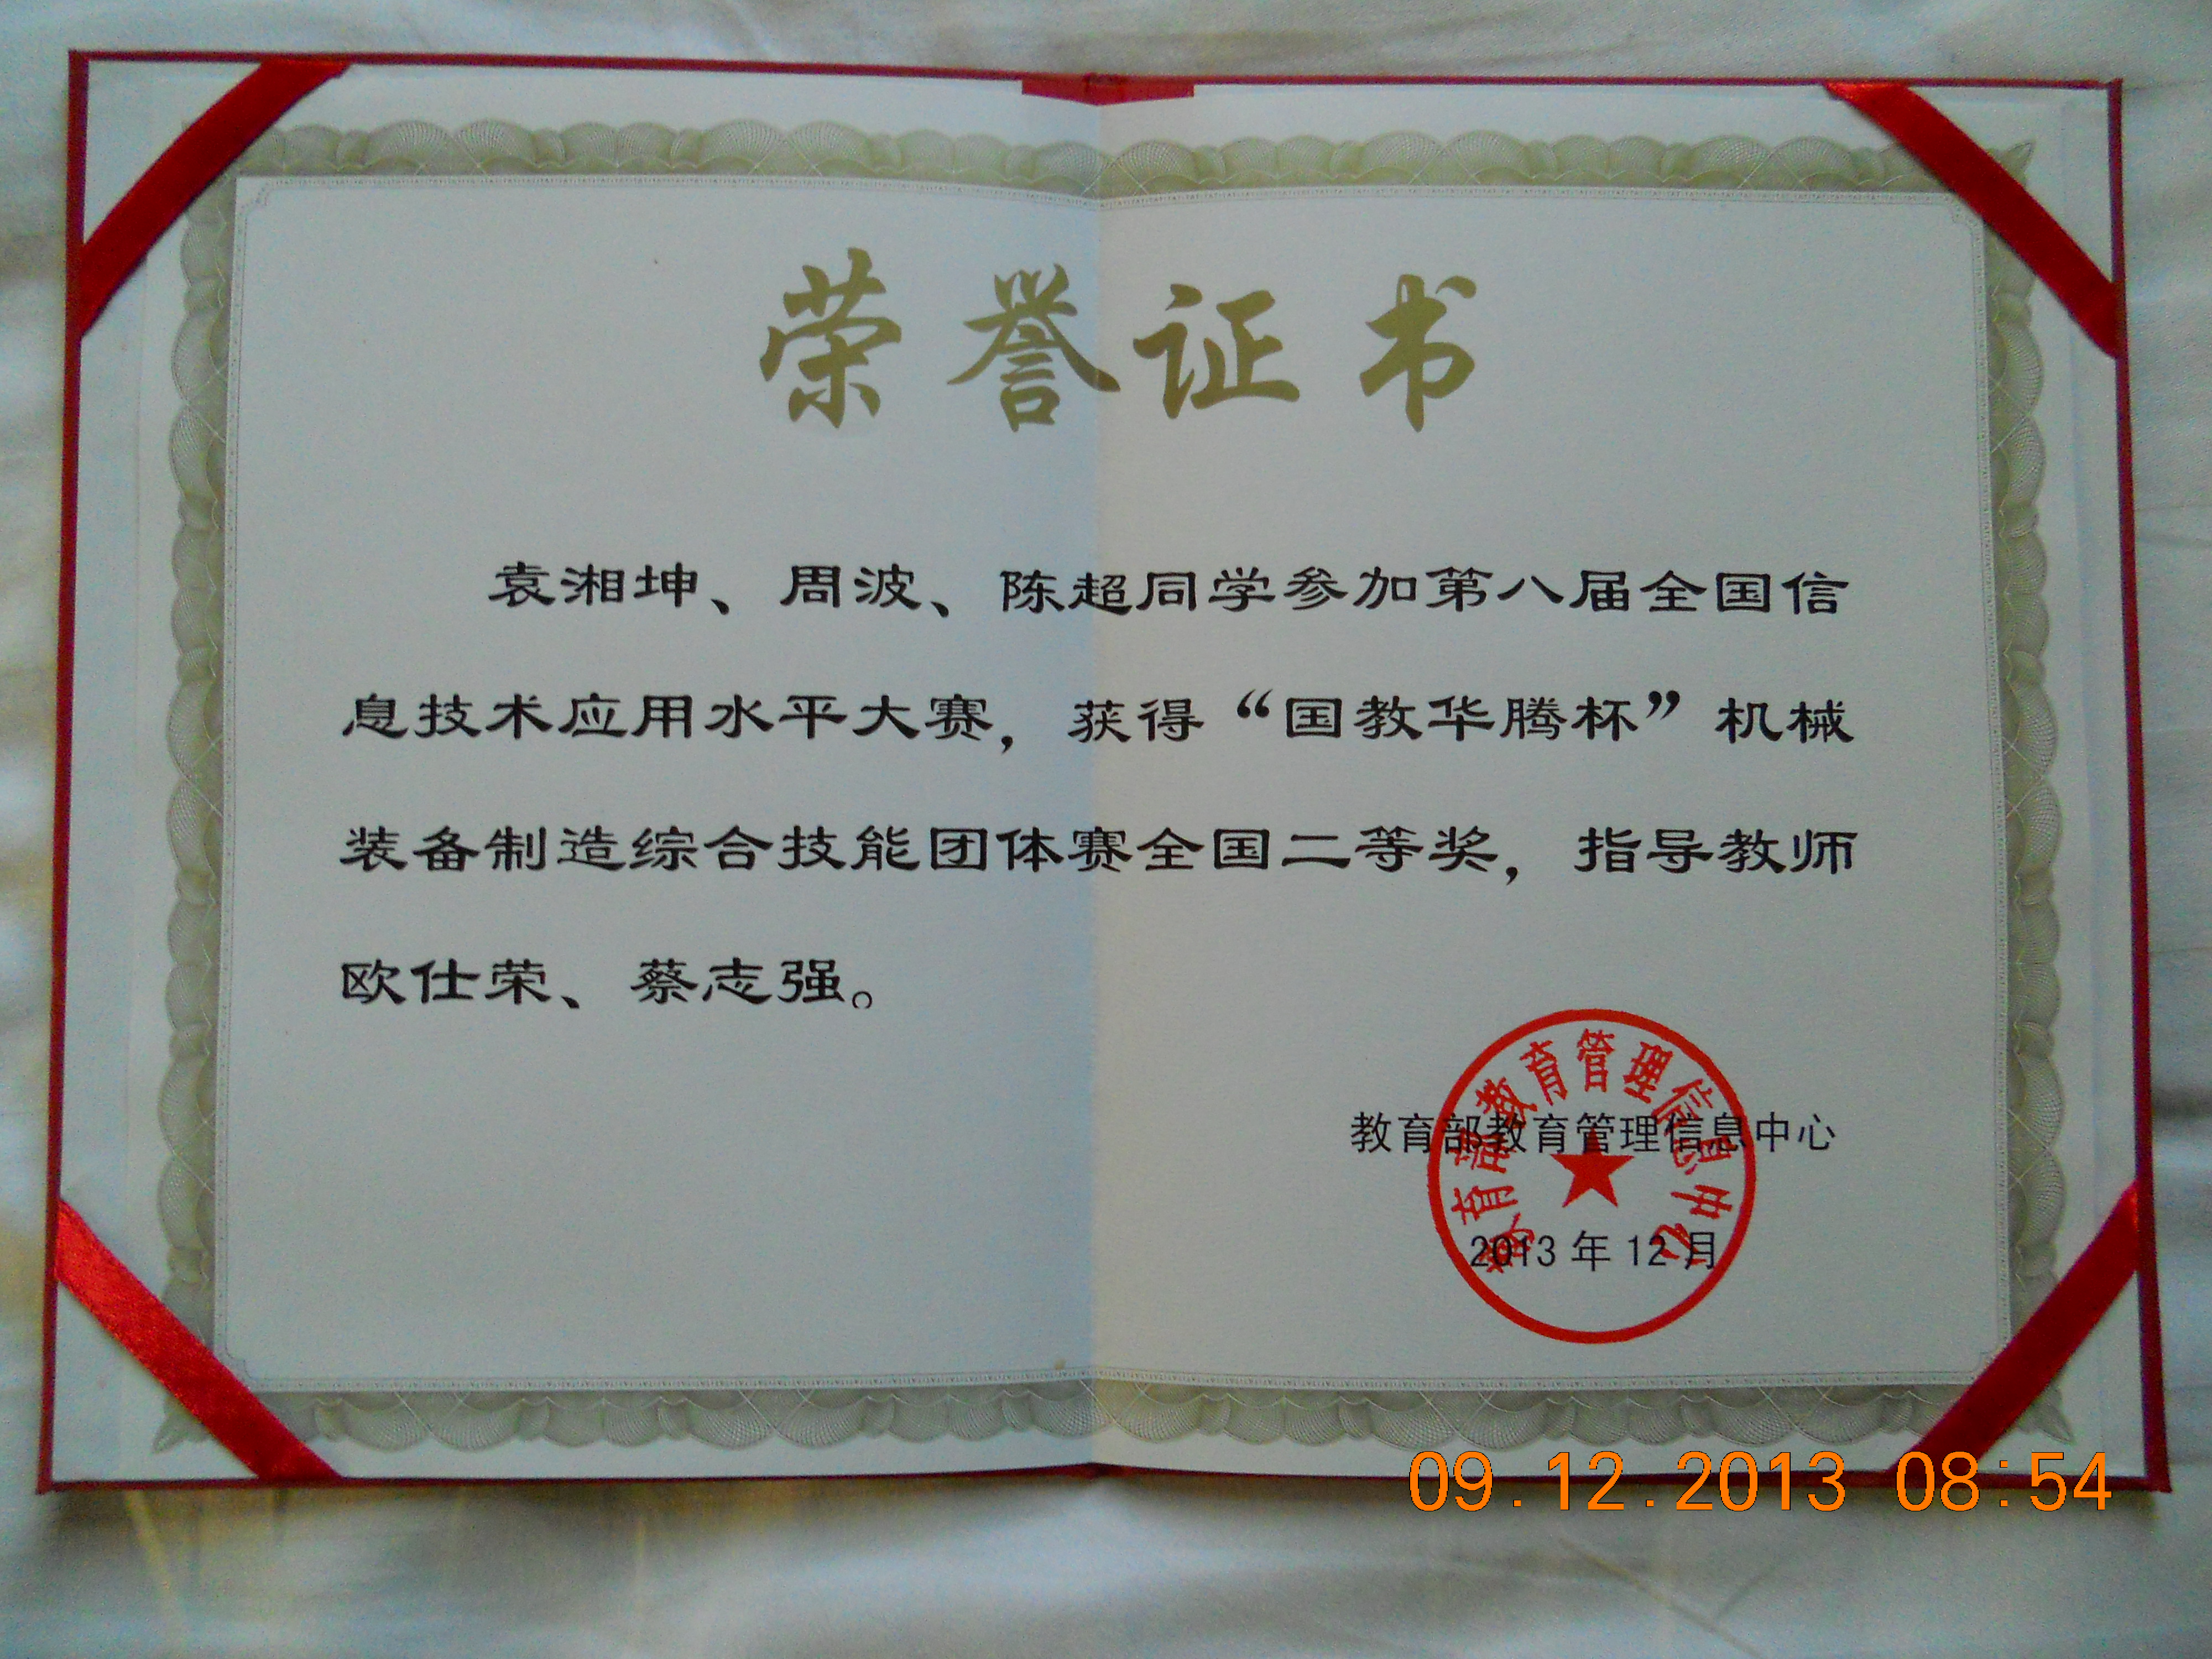 荣誉证书
袁湘坤、周波、陈超同学参加第八届全国信
息技术应用水平大赛，获得“国教华腾杯”机械
装备制造综合技能团体赛全国二等奖，指导教师
欧仕荣、蔡志强。
教育部教育管理信息中心
教育部教育管理信息中心
2013年12月
09.12.2013 08:54